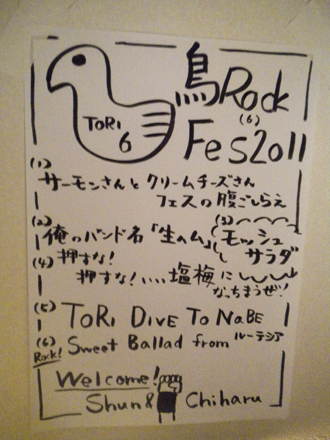 TORI
6
鳥Rock
(6)
Fes2011
(1)
サーモンさんとクリームチーズさん
フェスの腹ごしらえ
(2)
俺のバンド名「生ハム」
(3)
モッシュ
サラダ
(4) 押すな!
押すな!....塩梅に
なっちまうぜ!
(5) TORI DIVE TO NABE
(6) Sweet Ballad from ルーテシア
Rock!
Welcome!
Shun & Chiharu